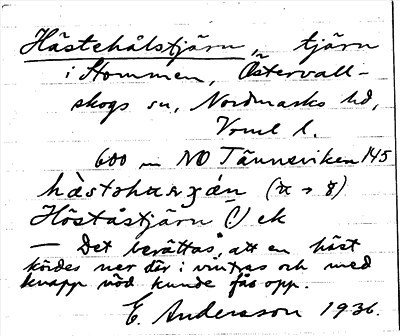 Hästehålstjärn, tjärn
i Stommen, Östervall-
skogs sn, Nordmarks hd,
Vrml l.
600 m NO Tännsviken 145
(ɑ → 8)
Höståstjärn (!) ek
— Det berättas, att en häst
kördes ner där i vintras och med
knapp nöd kunde fås opp.
E. Andersson 1936.